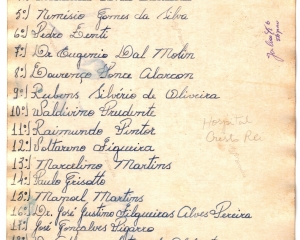 5º) Nemísio Gomes da Silva
6º) Pedro Zenti
7º) Dr Eugenio Dal Molin
8º) Lourenço Ponce Alarcon
9º) Rubens Silvério de Oliveira
10º) Waldivino Prudente
11º) Raimundo Pintor
12º) Soltarino Siqueira
13º) Marcelino Martins
14º) Paulo Grisotto
15º) Manoel Martins
16º) Dr. José Justino Filgueiras Alves Pereira
17º) José Gonçalves
Hospital
Cristo Rei